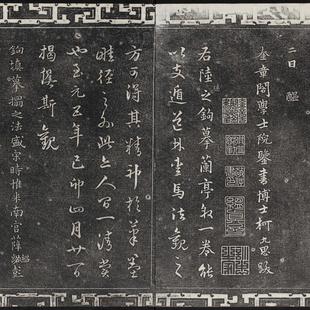 二日
奎章閣學士院鑒書博士柯九思跋
右陸之鉤摹蘭亭敘一卷能
以支遁道林愛馬法觀之
方可得其精神於筆墨
畦徑之外此亦人間一清賞
也至元五年己卯四月廿一日
揭傒斯觀
鉤填摹搨之法盛宋時惟米南宮薛紹彭